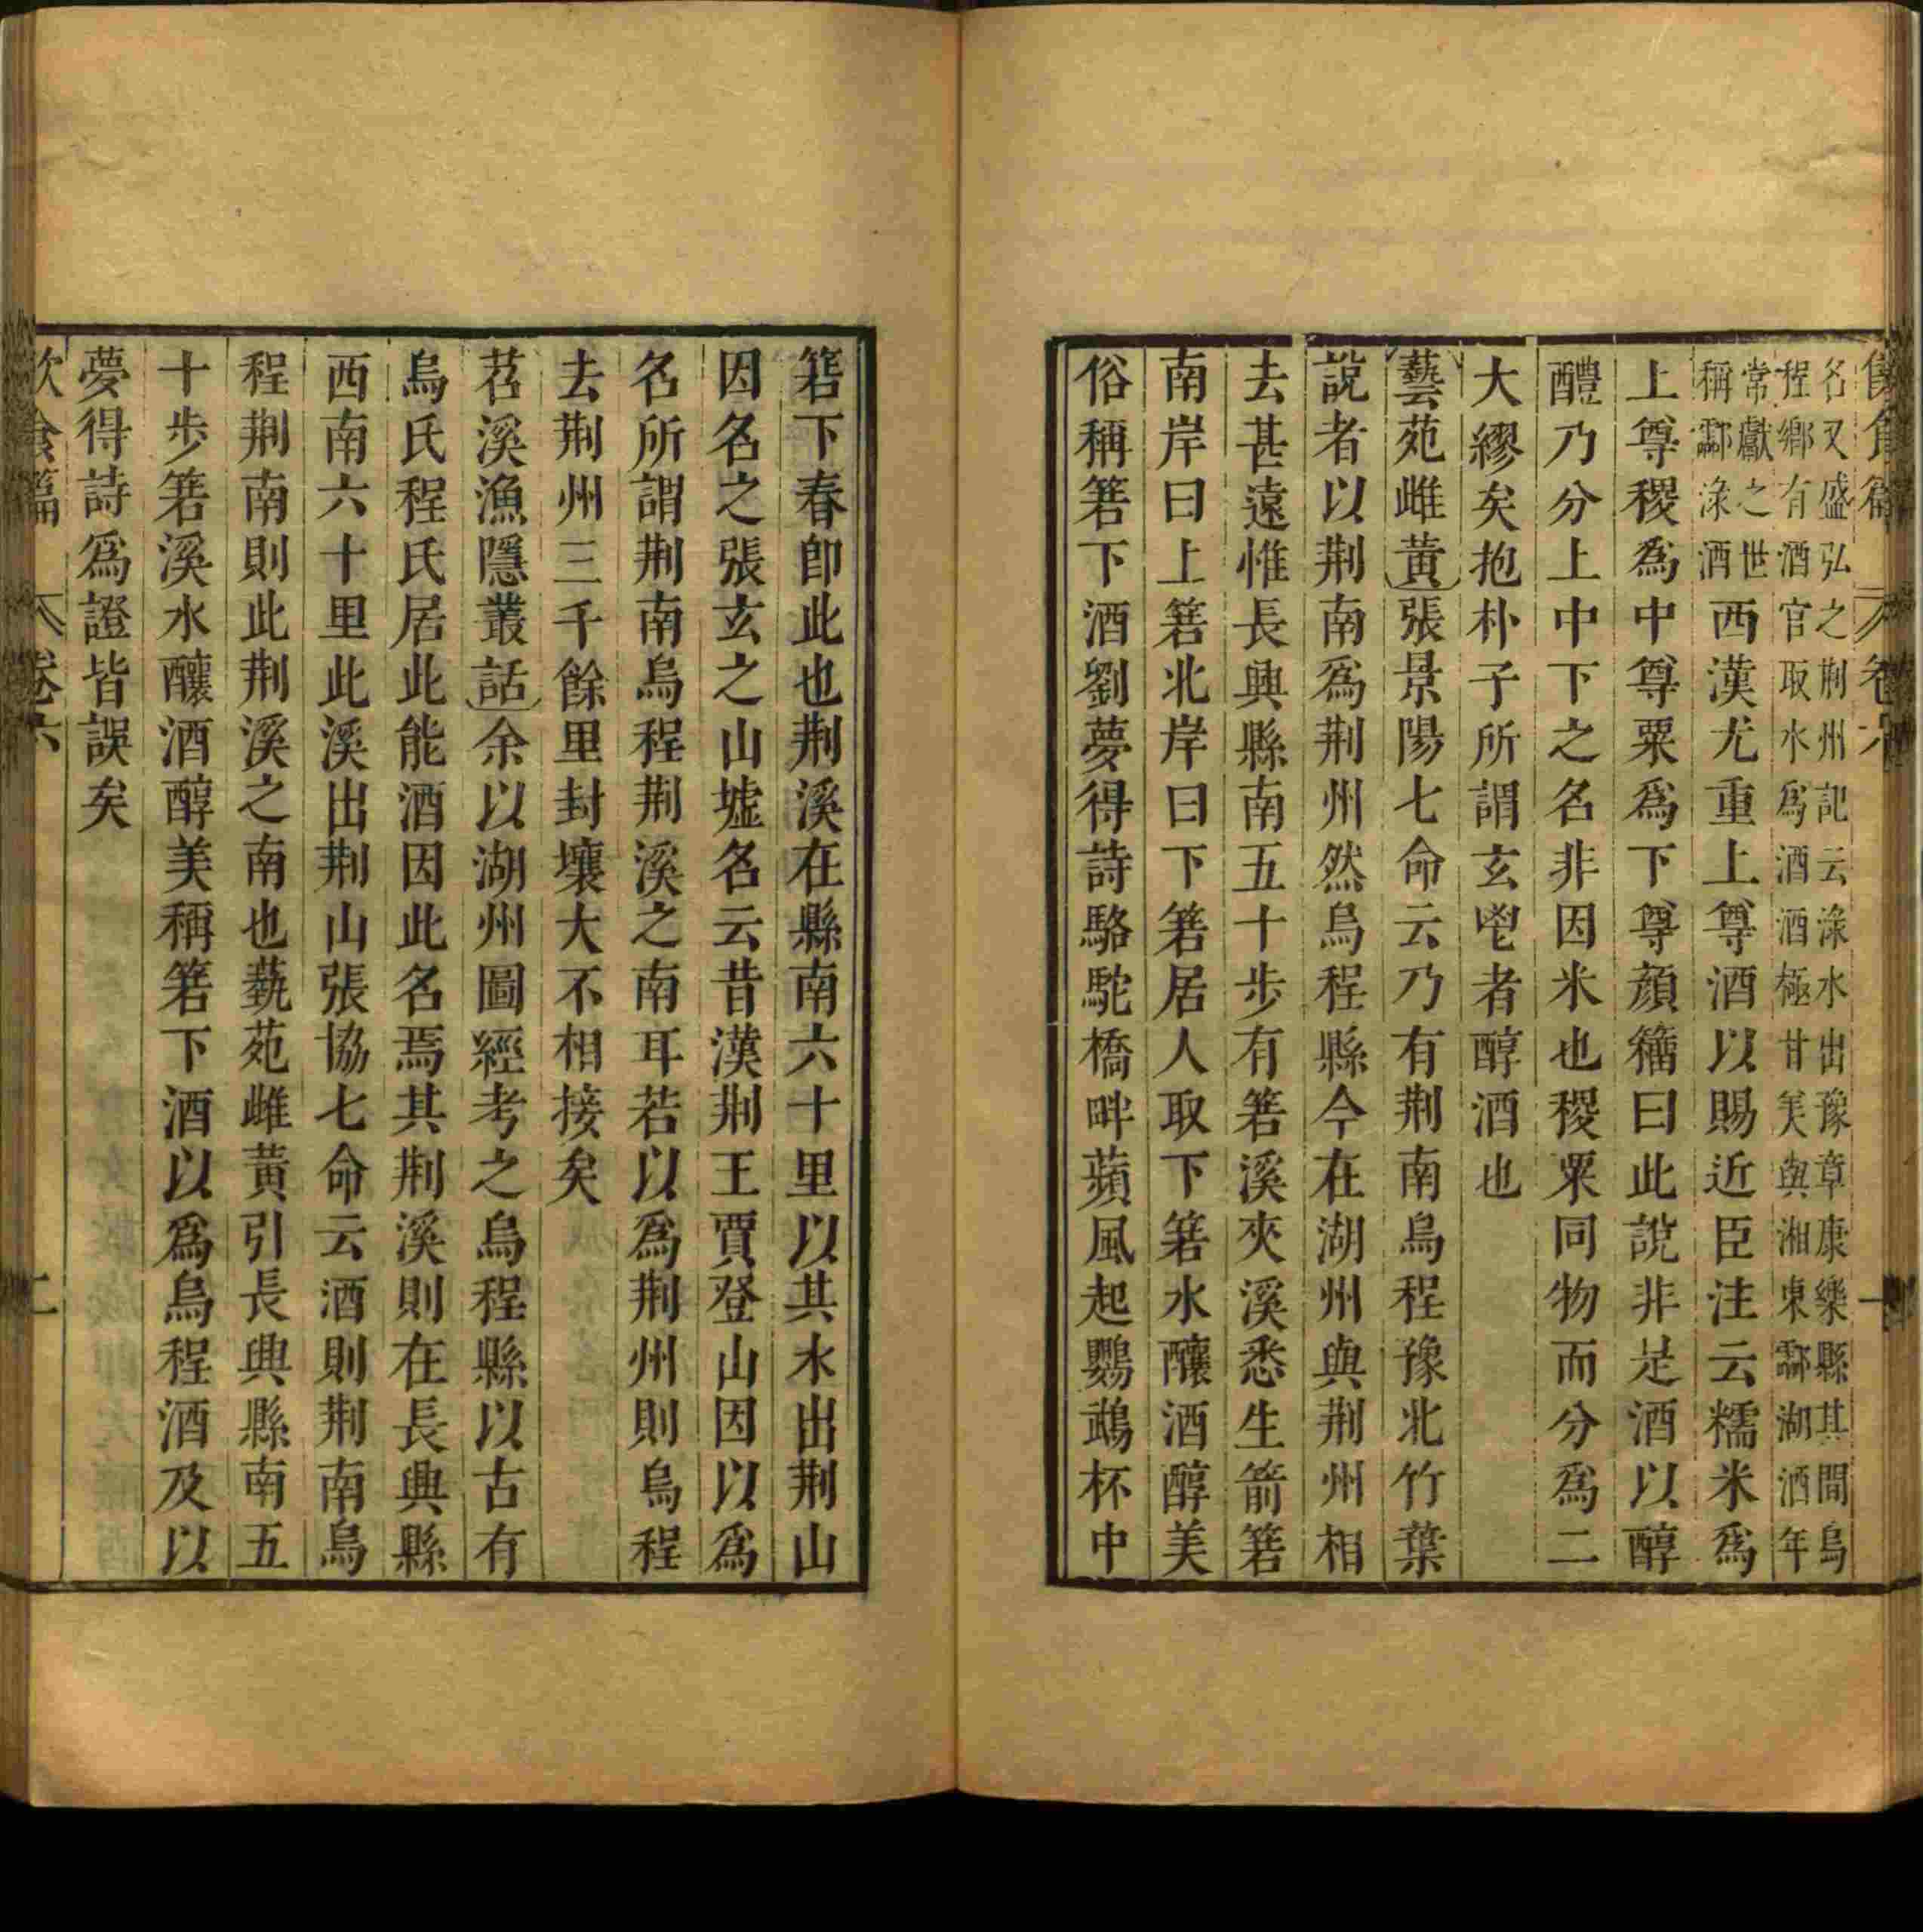 飲食篇 卷六 一
名又盛弘之荆州記云淥水出豫章康樂縣其間烏
程鄉有酒官取水爲酒酒極甘美與湘東酃湖酒年
常獻之世
稱酃淥酒
西漢尤重上尊酒以賜近臣注云糯米爲
上尊稷爲中尊粟爲下尊顏籀曰此說非是酒以醇
醴乃分上中下之名非因米也稷粟同物而分爲二
大繆矣抱朴子所謂玄鬯者醇酒也
藝苑雌黃張景陽七命云乃有荆南烏程豫北竹葉
說者以荆南爲荆州然烏程縣今在湖州與荆州相
去甚遠惟長興縣南五十步有箬溪夾溪悉生箭箬
南岸曰上箬北岸曰下箬居人取下箬水釀酒醇美
俗稱箬下酒劉夢得詩駱駝橋畔蘋風起鸚鵡杯中
箬下春卽此也荆溪在縣南六十里以其水出荆山
因名之張玄之山墟名云昔漢荆王賈登山因以爲
名所謂荆南烏程荆溪之南耳若以爲荆州則烏程
去荆州三千餘里封壤大不相接矣
苕溪漁隱叢話余以湖州圖經考之烏程縣以古有
烏氏程氏居此能酒因此名焉其荆溪則在長興縣
西南六十里此溪出荆山張協七命云酒則荆南烏
程荆南則此荆溪之南也藝苑雌黃引長興縣南五
十步箬溪水釀酒醇美稱箬下酒以爲烏程酒及以
夢得詩爲證皆誤矣
飲食篇 卷六 二